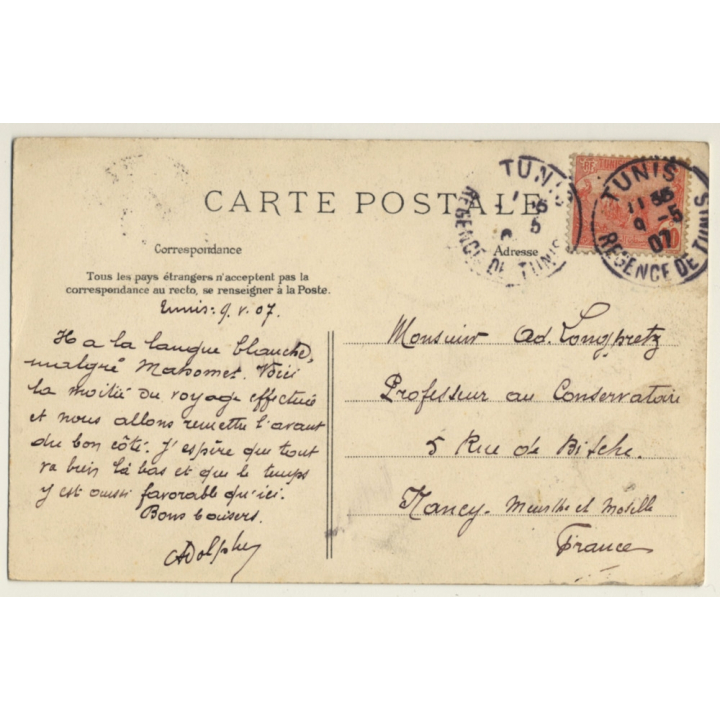 CARTE POSTALE
Correspondance
Tous les pays étrangers n'acceptent pas la
correspondance au recto, se renseigner à la Poste.
Adresse
TUNIS
5
REGENCE DE TUNIS
RF TUNIS
TUNIS
9 -5
07
REGENCE DE TUNIS
Tunis. 9. V. 07.
Il a la langue blanche,
malgré Mahomet. Voici
la moitié du voyage effectuée
et nous allons remettre l'avant
du bon côté. J'espère que tout
va bien là bas et que le temps
y est aussi favorable qu'ici.
Bons baisers.
Adolphe
Monsieur Ad. Longpretz
Professeur au Conservatoire
5 Rue de Bitche.
Nancy. Meurthe et Moselle
France